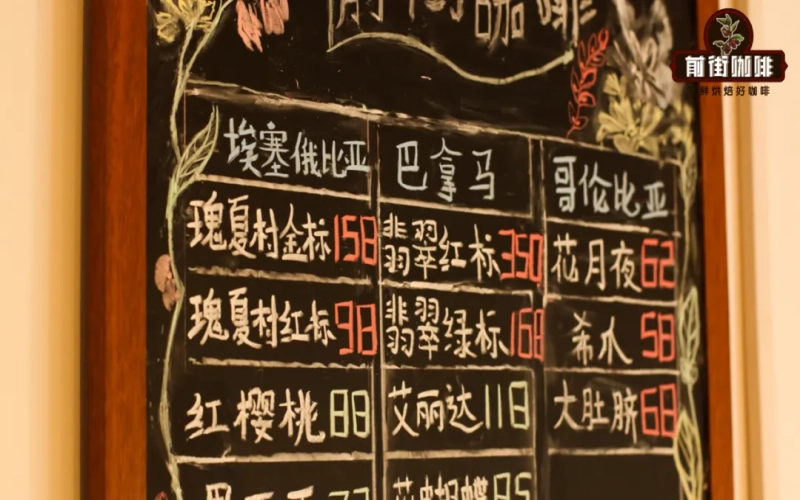 咖啡
前街咖啡
鲜烘焙好咖啡
埃塞俄比亚 巴拿马 哥伦比亚
瑰夏村金标158 翡翠红标350 花月夜62
瑰夏村红标98 翡翠绿标168 希爪58
红樱桃88 艾丽达118 大肚脐68
花蝴蝶85